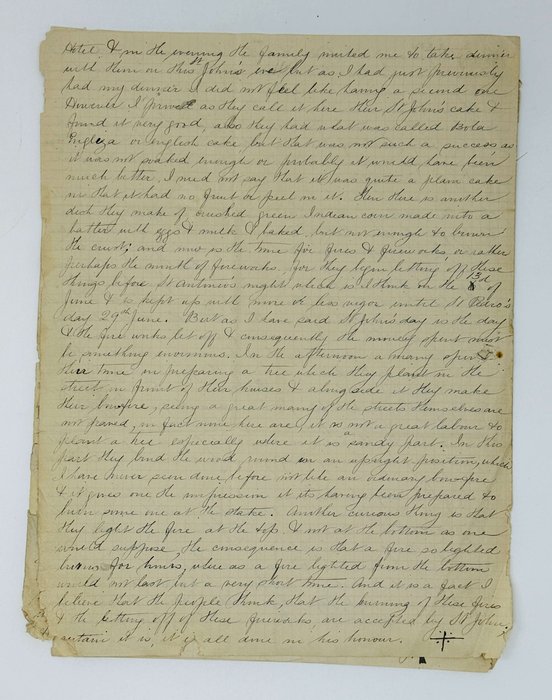 Hotel & in the evening the family invited me to take dinner
with them on this St John's eve but as I had just previously
had my dinner I did not feel like having a second one
However I proved as they call it here their St John's cake &
found it very good, also they had what was called Bola
Engleza or english cake, but that was not such a success as
it was not soaked enough or probably it would have been
much better, I need not say that it was quite a plain cake
in that it had no fruit or peel in it. Then there is another
dish they make of crushed green Indian corn made into a
batter with eggs & milk & baked, but not enough to brown
the crust; and now is the time for fires & fireworks, or rather
perhaps the month of fireworks, for they begin letting off these
things before St Antonio's night which is I think on the 13d of
June & is kept up with more or less vigor until St Pedro's
day 29th June. But as I have said St John's day is the day
& the fire works let off & consequently the money spent must
be something enormous. In the afternoon a many spend
their time in preparing a tree which they plant in the
street in front of their houses & along side it they make
their bow-fire, seeing a great many of the streets themselves are
not paved, in fact none here are, it is not a great labour to
plant a tree especially where it is a sandy part. In this
part they bind the wood round in an upright position, which
I have never seen done before not like an ordinary bow-fire
& it gives one the impression of its having been prepared to
burn some one at the stake. Another curious thing is that
they light the fire at the top & not at the bottom as one
would suppose, the consequence is that a fire so lighted
burns for hours, where as a fire lighted from the bottom
would not last but a very short time. And it is a fact I
believe that the people think, that the burning of these fires
& the letting off of these fireworks, are accepted by St John,
certain it is, it is all done in his honour.